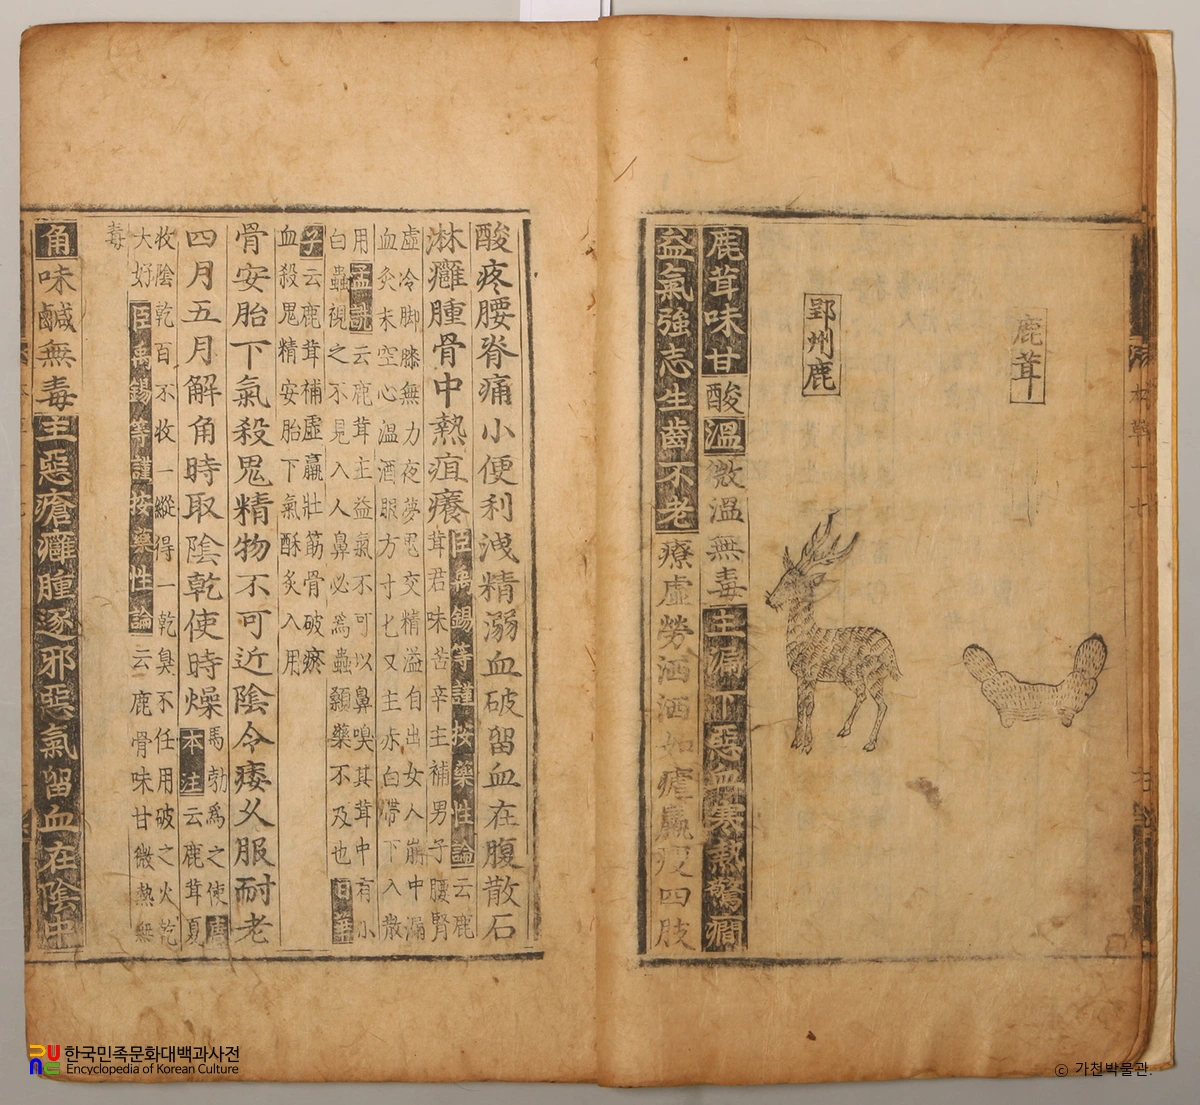 鹿茸
郢州鹿
鹿茸味甘酸溫微溫無毒主漏下惡血寒熱驚癎
益氣強志生齒不老療虛勞洒洒如瘧羸瘦四肢
酸疼腰脊痛小便利洩精溺血破留血在腹散石
淋癰腫骨中熱疽癢臣禹錫等謹按藥性論云鹿
茸君味苦辛主補男子腰腎
虛冷脚膝無力夜夢鬼交精溢自出女人崩中漏
血灸末空心溫酒服方寸匕又主赤白帶下入散
用孟詵云鹿茸主益氣不可以鼻嗅其茸中有小
白蟲視之不見入人鼻必為蟲顙藥不及也日華
子云鹿茸補虛羸壯筋骨破瘀
血殺鬼精安胎下氣酥炙入用
骨安胎下氣殺鬼精物不可近陰令痿久服耐老
四月五月解角時取陰乾使時燥馬勃為之使唐
本注云鹿茸夏
收陰乾百不收一縱得一乾臭不任用破之火乾
大好臣禹錫等謹按藥性論云鹿骨味甘微熱無
毒
角味鹹無毒主惡瘡癰腫逐邪惡氣留血在陰中
한국민족문화대백과사전
Encyclopedia of Korean Culture
© 가천박물관.